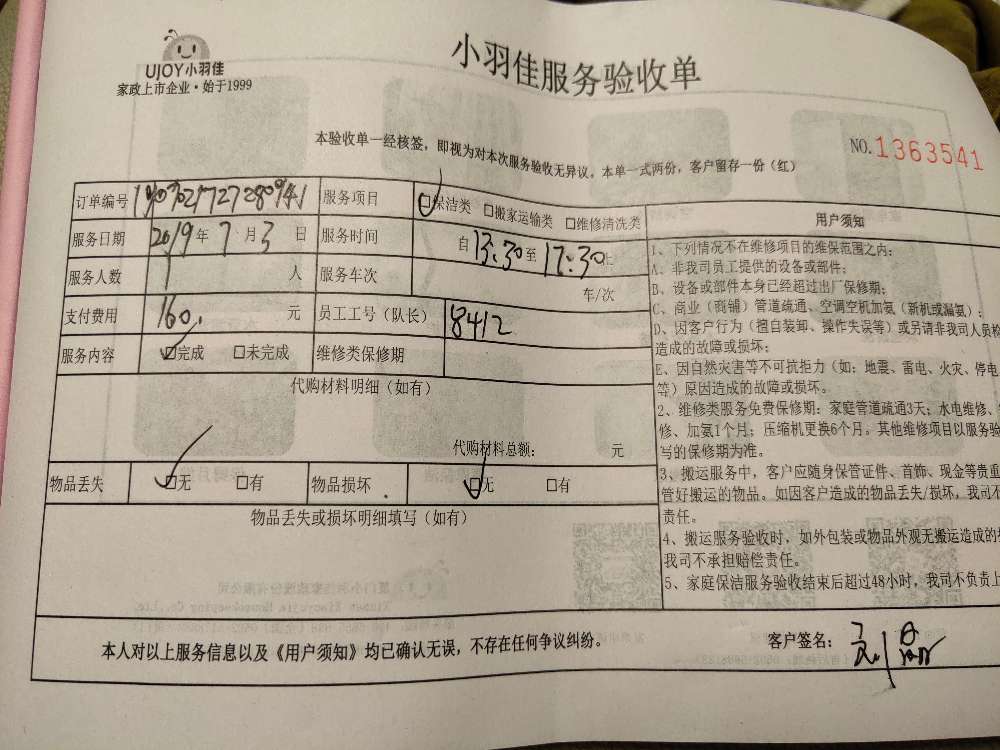 UJOY小羽佳
家政上市企业·始于1999
小羽佳服务验收单
本验收单一经核签，即视为对本次服务验收无异议。本单一式两份，客户留存一份（红）
NO.1363541
订单编号 服务项目 □保洁类 □搬家运输类 □维修清洗类
服务日期 2019年7月3日 服务时间 自13:30至17:30止
服务人数 1人 服务车次 车/次
支付费用 160.元 员工工号（队长） 8412
服务内容 □完成 □未完成 维修类保修期
代购材料明细（如有）
代购材料总额： 元
物品丢失 □无 □有 物品损坏 □无 □有
物品丢失或损坏明细填写（如有）
用户须知
1、下列情况不在维修项目的维保范围之内：
A、非我司员工提供的设备或部件；
B、设备或部件本身已经超过出厂保修期；
C、商业（商铺）管道疏通、空调空机加氨（新机或漏氨）；
D、因客户行为（擅自装卸、操作失误等）或另请非我司人员检
造成的故障或损坏；
E、因自然灾害等不可抗拒力（如：地震、雷电、火灾、停电
等）原因造成的故障或损坏。
2、维修类服务免费保修期：家庭管道疏通3天；水电维修、
修、加氨1个月；压缩机更换6个月。其他维修项目以服务验
写的保修期为准。
3、搬运服务中，客户应随身保管证件、首饰、现金等贵重
管好搬运的物品。如因客户造成的物品丢失/损坏，我司不
责任。
4、搬运服务验收时，如外包装或物品外观无搬运造成的
我司不承担赔偿责任。
5、家庭保洁服务验收结束后超过48小时，我司不负责上
本人对以上服务信息以及《用户须知》均已确认无误，不存在任何争议纠纷。 客户签名：